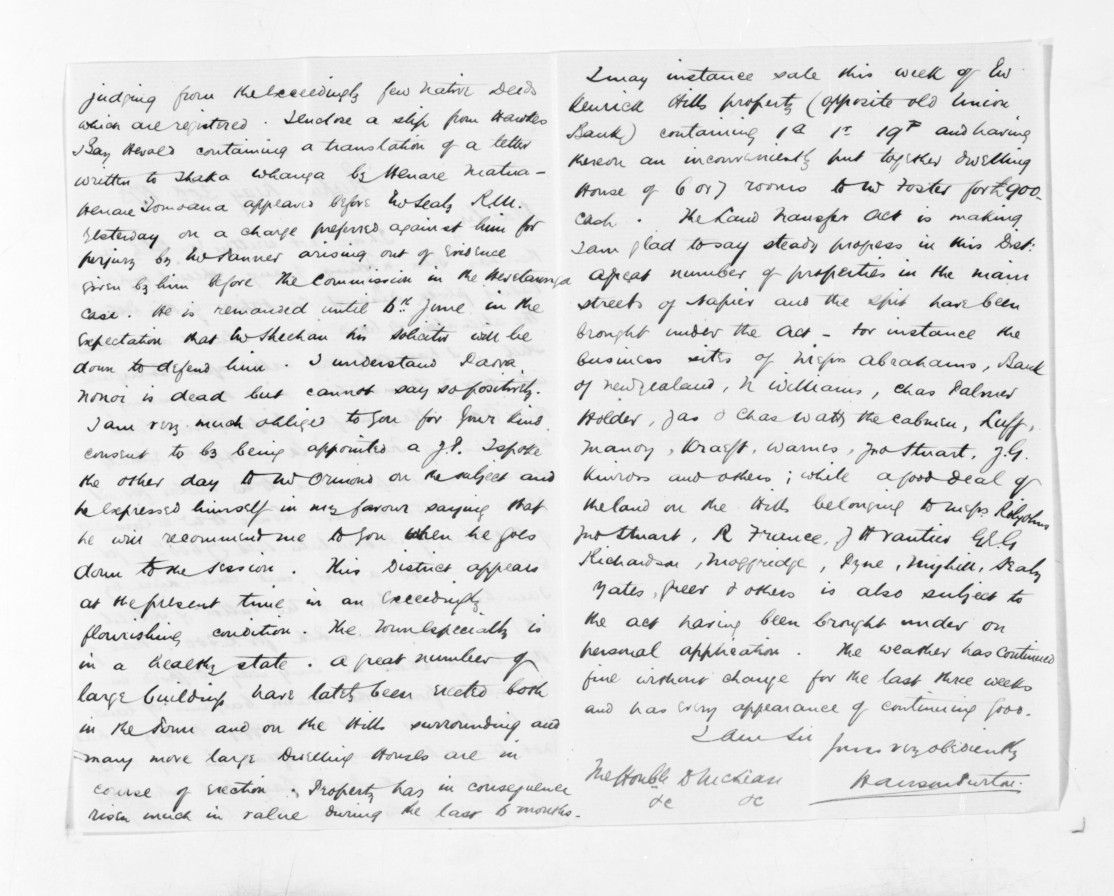 judging from the exceedingly few native Deeds
which are registered. I enclose a slip from Hawkes
Bay Herald containing a translation of a letter
written to Ihaka Whanga by Henare Matua -
Henare Tomoana appeared before Mr Sealy R.M.
yesterday on a charge preferred against him for
perjury by Mr Tanner arising out of evidence
given by him before the Commission in the Heretaunga
case. He is remanded until 6th June in the
expectation that Mr Sheehan his solicitor will be
down to defend him. I understand
is dead but cannot say so positively.
I am very much obliged to you for your kind
consent to being appointed a J.P. I spoke
the other day to Mr Ormond on the subject and
he expressed himself in my favour saying that
he will recommend me to you when he goes
down to the session. This District appears
at the present time in an exceedingly
flourishing condition. The Town especially is
in a healthy state. A great number of
large buildings have lately been erected both
in the Town and on the Hills surrounding and
many more large Dwelling Houses are in
course of erection. Property has in consequence
risen much in value during the last 6 months.
I may instance sale this week of Mr
Kenrick Hills property (opposite old Union
Bank) containing 1a 1r 19p and having
thereon an inconveniently put together dwelling
House of 6 or 7 rooms to Mr Foster for £900.
cash. The Land Transfer Act is making
I am glad to say steady progress in this Dist:
a great number of properties in the main
streets of Napier and the Spit have been
brought under the Act - For instance the
business sites of Messrs Abrahams, Bank
of New Zealand, N Williams, Chas Palmer
Holder, Jas & Chas Watts the cabmen, Luff,
Manoy, Kraeft, Warnes, Jno Stuart, J.G.
Kinross and others; while a good deal of
the land on the Hills belonging to Messrs
Jno Stuart, R France, J H Vautier G.E.G
Richardson, Moggridge, Tyne, Myhill, Sealy
Yates, Greer & others is also subject to
the act having been brought under on
personal application. The weather has continued
fine without change for the last three weeks
and has every appearance of continuing good.
I am Sir
yours very obediently
Hanson Turton.
The Honble D McLean
&c &c